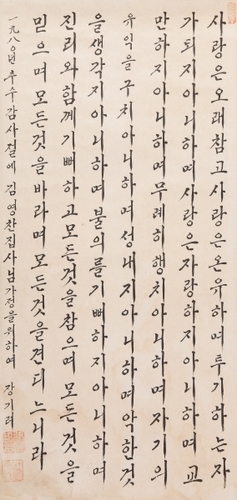 사랑은오래참고사랑은온유하며투기하는자
가되지아니하며사랑은자랑하지아니하며교
만하지아니하며무례히행치아니하며자기의
유익을구치아니하며성내지아니하며악한것
을생각지아니하며불의를기뻐하지아니하며
진리와함께기뻐하고모든것을참으며모든것을
믿으며모든것을바라며모든것을견디느니라
一九八○년추수감사절에 김영찬집사님가정을위하여 장기려